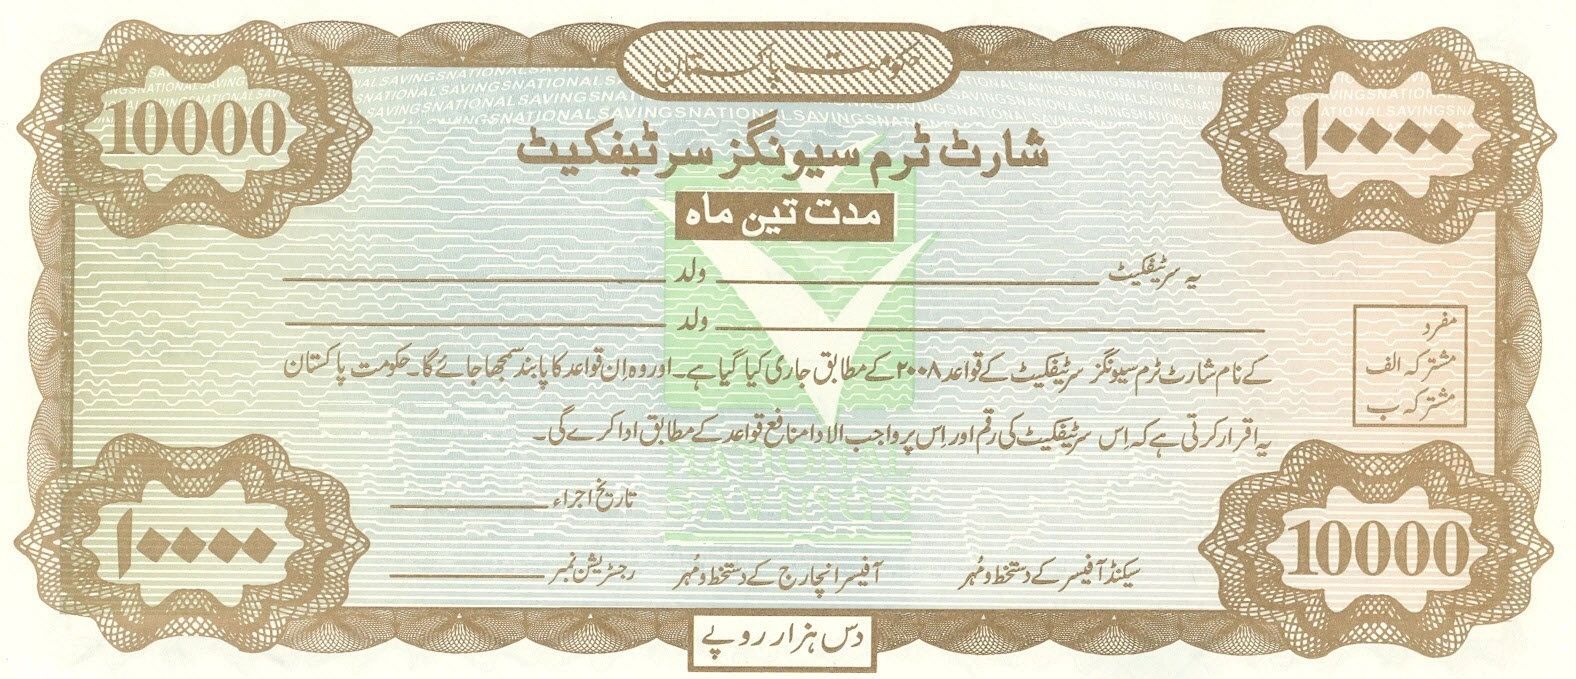 حکومت پاکستان
10000
۱۰۰۰۰
شارٹ ٹرم سیونگز سرٹیفکیٹ
مدت تین ماہ
یہ سرٹیفکیٹ ____________ ولد ____________
____________ ولد ____________
مفرد
مشترکہ الف
مشترکہ ب
کے نام شارٹ ٹرم سیونگز سرٹیفکیٹ کے قواعد ۲۰۰۸ کے مطابق جاری کیا گیا ہے۔ اور وہ اِن قواعد کا پابند سمجھا جائے گا۔ حکومت پاکستان
یہ اقرار کرتی ہے کہ اِس سرٹیفکیٹ کی رقم اور اِس پر واجب الادا منافع قواعد کے مطابق ادا کرے گی۔
NATIONAL
SAVINGS
تاریخ اجراء ____________
سیکنڈ آفیسر کے دستخط و مُہر
آفیسر انچارج کے دستخط و مُہر
رجسٹریشن نمبر ____________
۱۰۰۰۰
10000
دس ہزار روپے